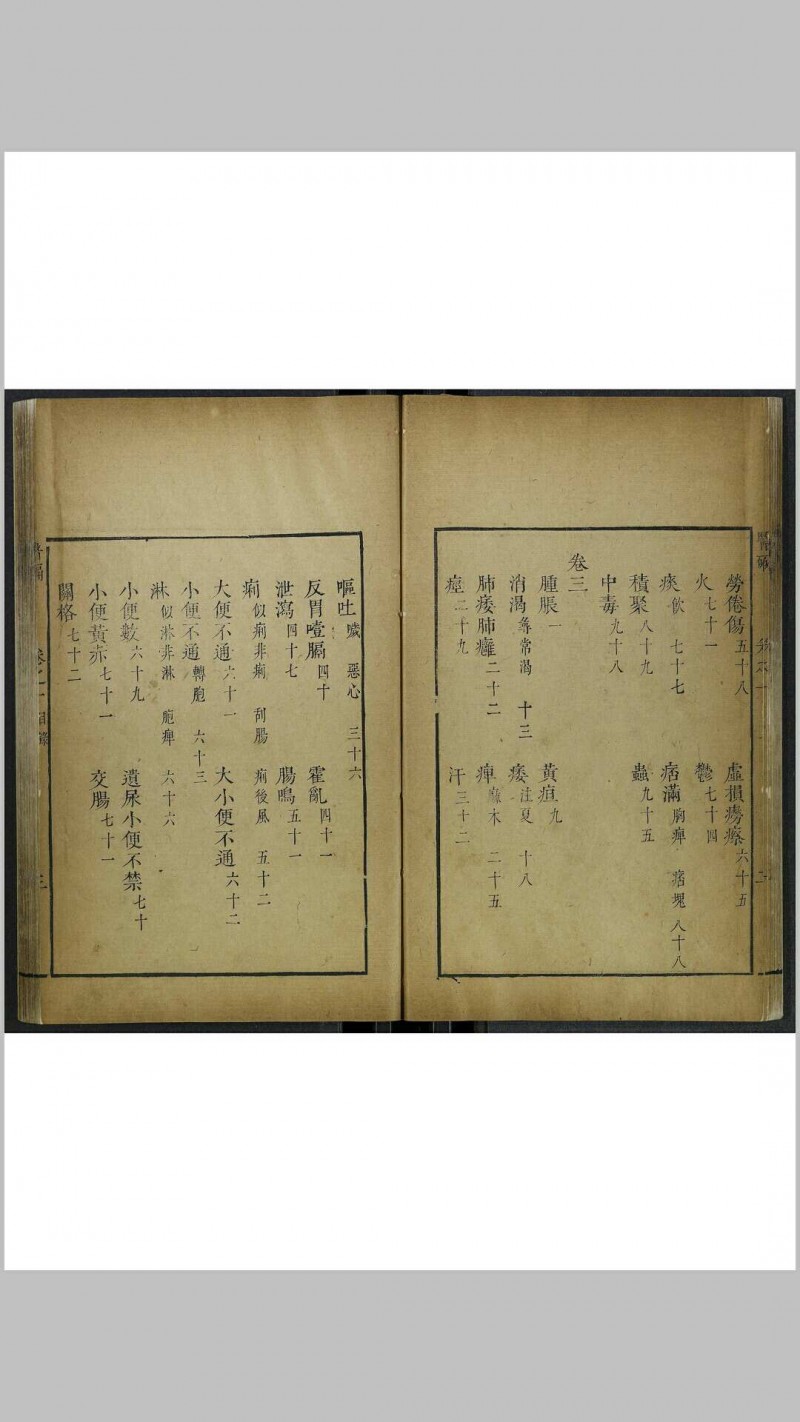 勞倦傷五十八　虛損癆瘵六十五
火七十一　鬱七十四
痰飲　七十七　痞滿胸痺　痞塊　八十八
積聚八十九　蟲九十五
中毒九十八
卷三
腫脹一　黃疸九
消渴　常渴　十三　痿注夏　十八
肺痿肺癰二十二　痺麻木　二十五
痙二十九　汗三十二
嘔吐噦　惡心　三十六
反胃噎膈四十　霍亂四十一
泄瀉四十七　腸鳴五十一
痢似痢非痢　刮腸　痢後風　五十二
大便不通六十一　大小便不通六十二
小便不通轉胞　六十三
淋似淋非淋　胞痺　六十六
小便數六十九　遺尿小便不禁七十
小便黃赤七十一　交腸七十一
關格七十二